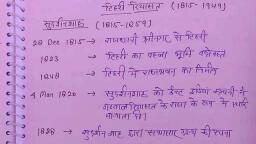 टिहरी रियासत (1815-1949)
सुदर्शनशाह (1815-1859)
28 Dec 1815 → राजधानी श्रीनगर से टिहरी
1823 → टिहरी का पहला भूमि बंदोबस्त
1848 → टिहरी में राजभवन का निर्माण
4 Mar 1820 → सुदर्शनशाह को ईस्ट इंडिया कम्पनी ने
गढ़वाल रियासत के राजा के रूप में
मान्यता दी।
1828 → सुदर्शन शाह द्वारा सभासार ग्रन्थ की रचना